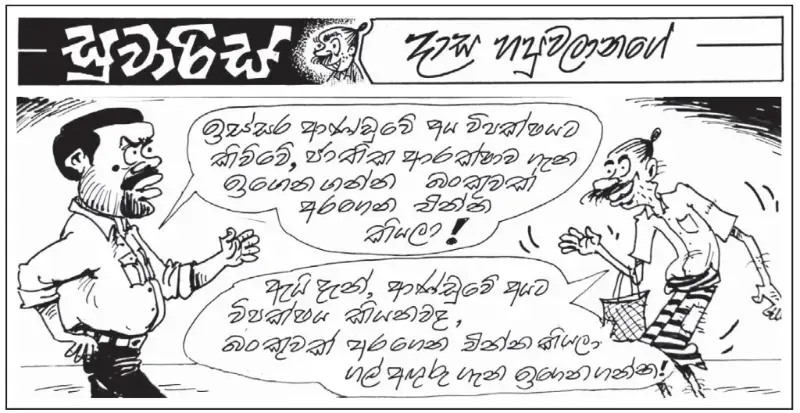 සුවාරිස්
දාස හපුවලානගේ
ඉස්සර ආණ්ඩුවේ අය විපක්ෂයට
කිව්වේ, ජාතික ආරක්ෂාව ගැන
ඉගෙන ගන්න බංකුවක්
අරගෙන එන්න
කියලා!
ඇයි දැන්, ආණ්ඩුවේ අයට
විපක්ෂය කියනවද,
බංකුවක් අරගෙන එන්න කියලා
ගල් අඟුරු ගැන ඉගෙනගන්න!